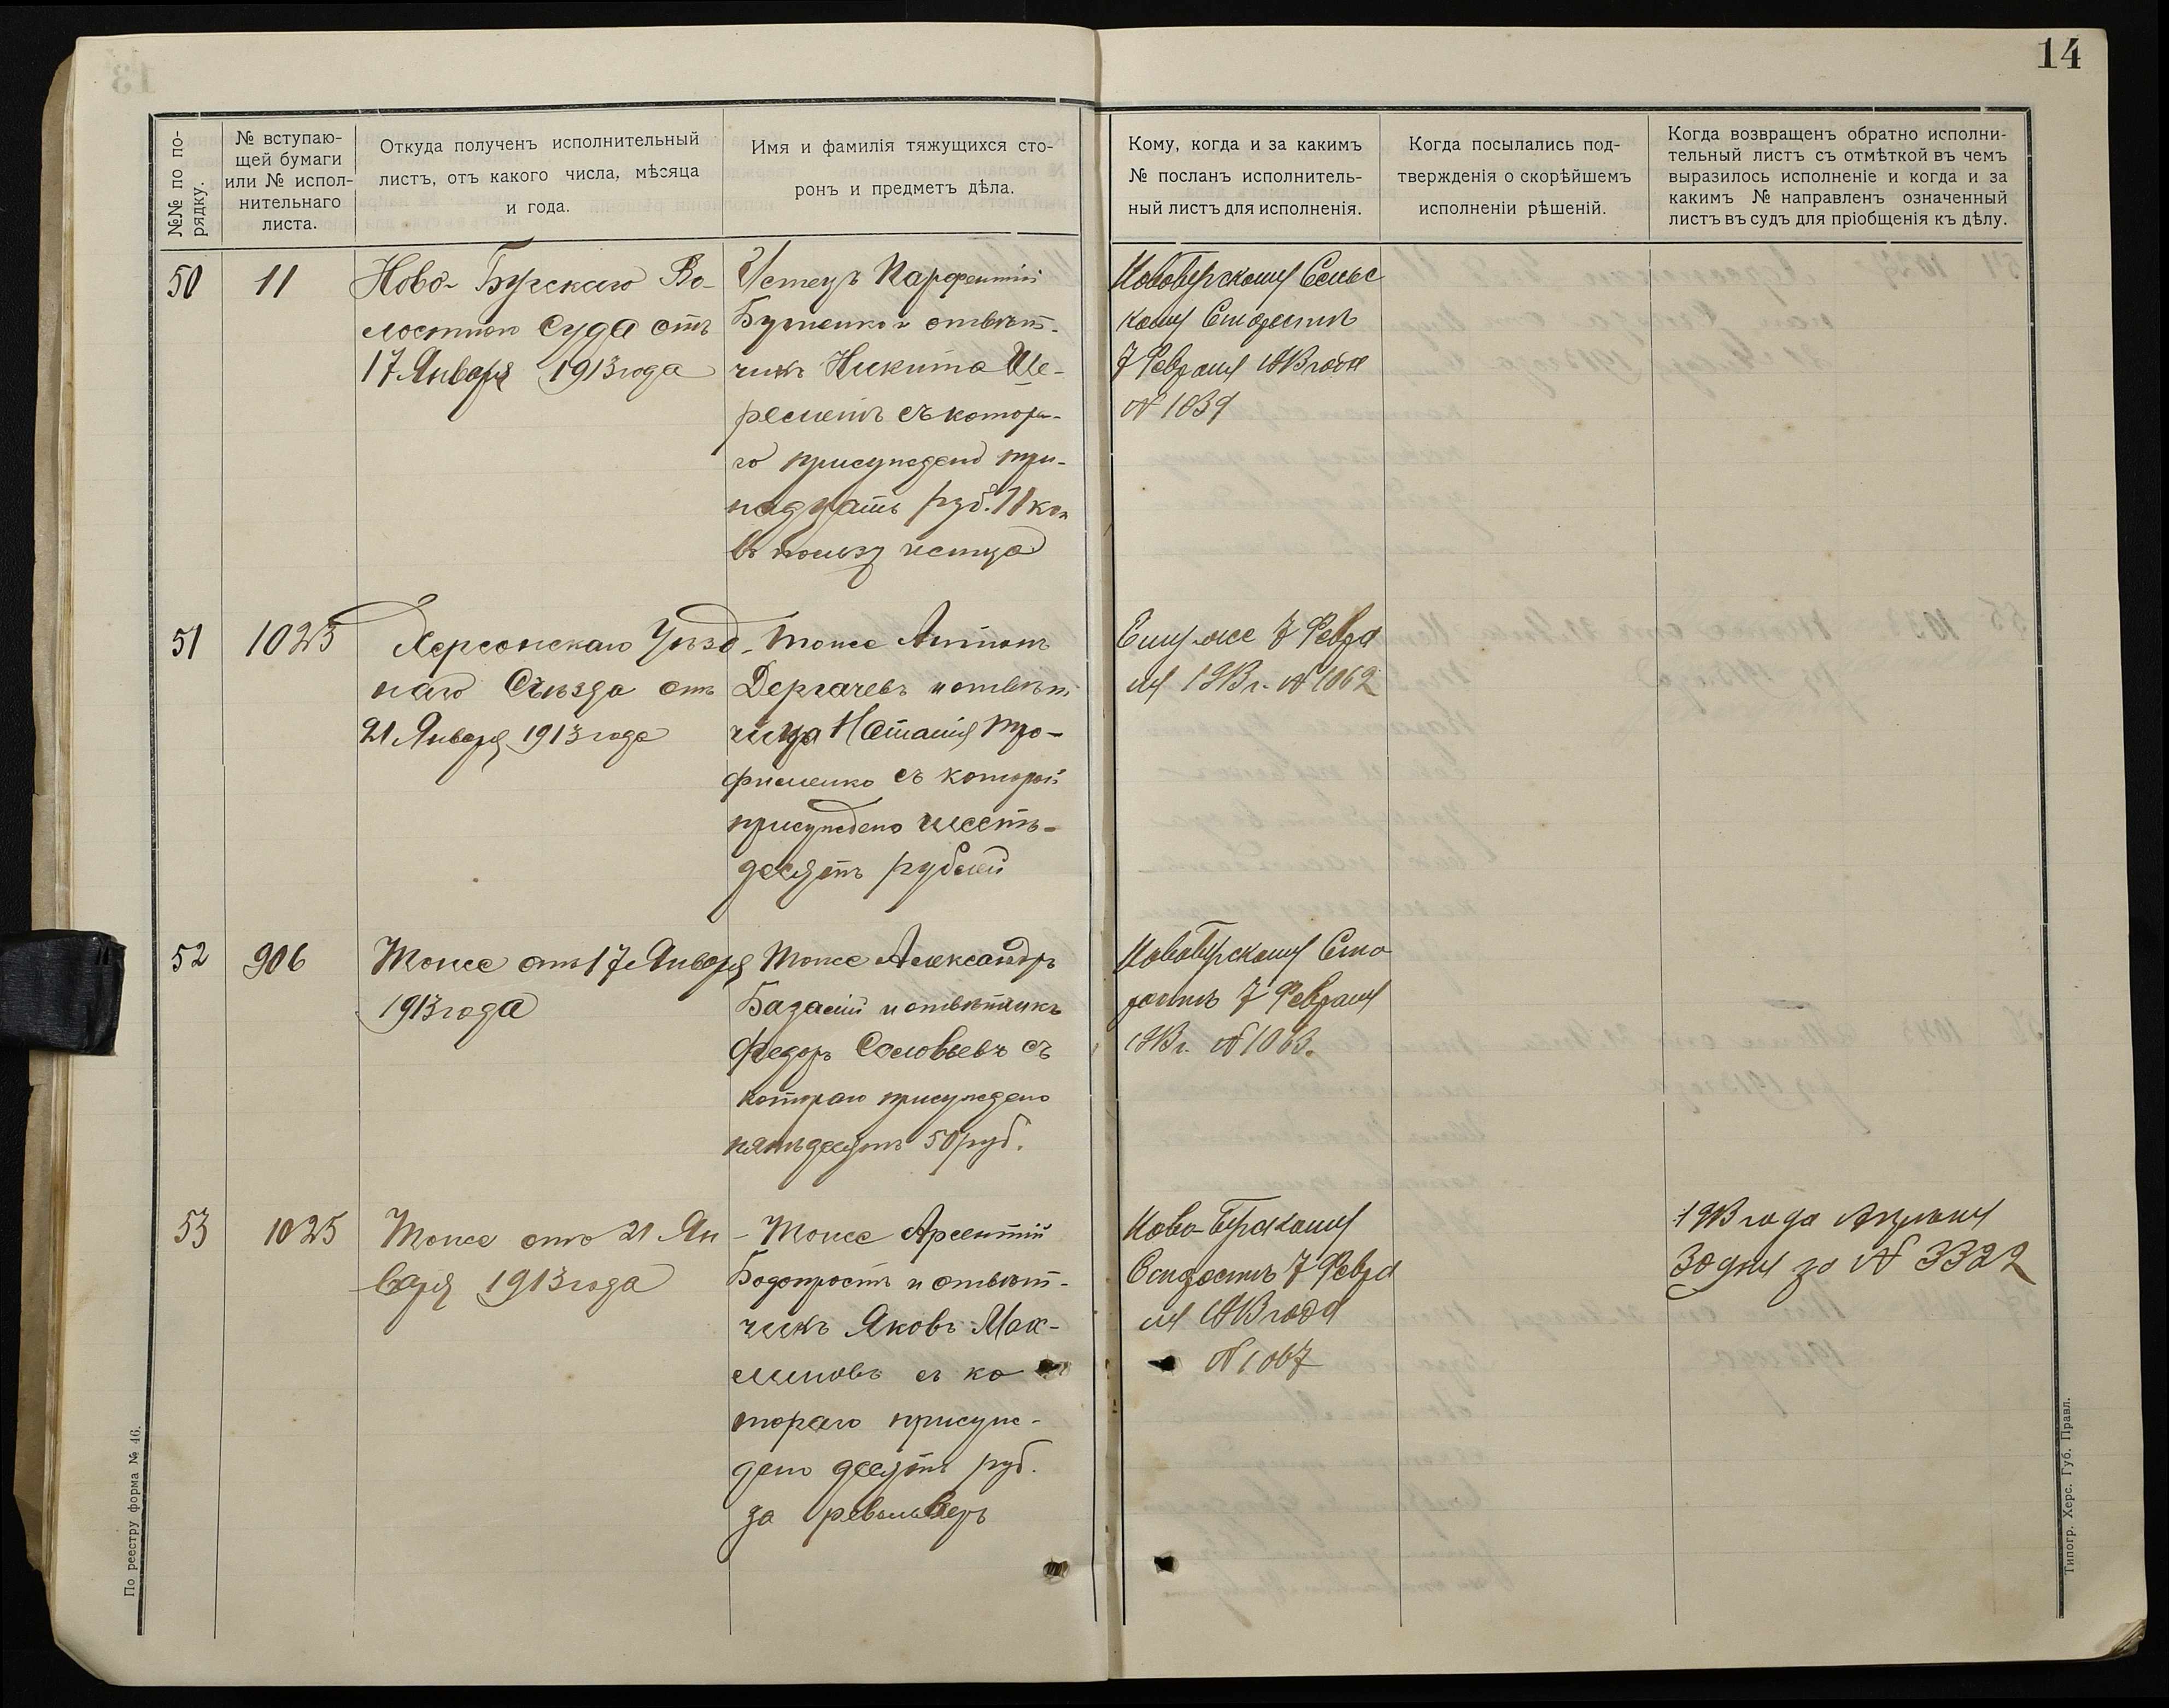 14
№№ по по-
рядку.
№ вступаю-
щей бумаги
или № испол-
нительнаго
листа.
Откуда полученъ исполнительный
листъ, отъ какого числа, мѣсяца
и года.
Имя и фамилія тяжущихся сто-
ронъ и предметъ дѣла.
Кому, когда и за какимъ
№ посланъ исполнитель-
ный листъ для исполненія.
Когда посылались под-
твержденія о скорѣйшемъ
исполненіи рѣшеній.
Когда возвращенъ обратно исполни-
тельный листъ съ отмѣткой въ чемъ
выразилось исполненіе и когда и за
какимъ № направленъ означенный
листъ въ судъ для пріобщенія къ дѣлу.
50
11
Ново-Бугскаго Во-
лостного Суда отъ
17 Января 1913 года
Истецъ Парфентій
и отвѣт-
чикъ Никита Ше-
реметъ съ котора-
го присуждено три-
надцать руб. 11 коп
въ пользу истца
Новобугскому Сельс
кому Старостѣ
7 Февраля 1913 года
№ 1039
51
1025
Херсонскаго Уѣзд-
наго Съѣзда отъ
21 Января 1913 года
Тоже Антонъ
Дергачевъ и отвѣт
чица Наталія Тро-
фименко съ которой
присуждено шесть-
десятъ рублей
Ему же 7 Февра
ля 1913 г. № 1062
52
906
Тоже отъ 17 Января
1913 года
Тоже Александръ
Базалій и отвѣтчикъ
Федоръ Соловьевъ съ
котораго присуждено
пятьдесятъ 50 руб.
Новобугскому Ста
ростѣ 7 Февраля
1913 г. № 1063.
53
1025
Тоже отъ 21 Ян-
варя 1913 года
Тоже Арсентій
и отвѣт-
чикъ Яковъ Мак-
симовъ съ ко
тораго присуж-
дено десять руб.
за револьверъ
Ново-Бугскому
7 Февра
ля 1913 года
№ 1067
1913 года Апрѣля
30 дня за № 3322
По реестру форма № 46.
Типогр. Херс. Губ. Правл.